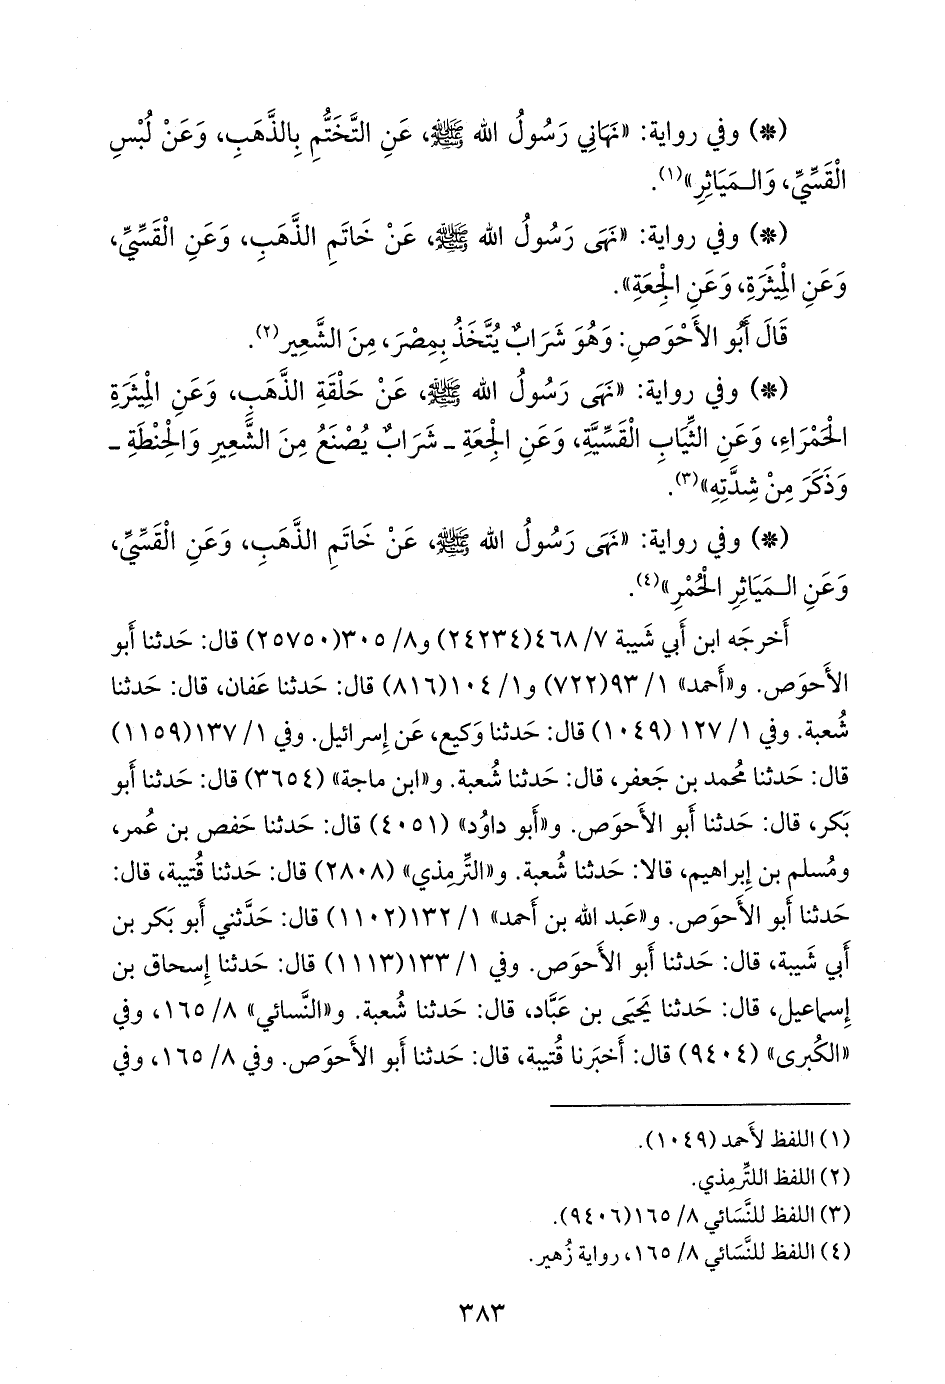 (*) وفي رواية: «نَهَانِي رَسُولُ الله ﷺ، عَنِ التَّخَتُّمِ بِالذَّهَبِ، وَعَنْ لُبْسِ
الْقَسِّيِّ، وَالـمَيَاثِرِ»(١).
(*) وفي رواية: «نَهَى رَسُولُ الله ﷺ، عَنْ خَاتَمِ الذَّهَبِ، وَعَنِ الْقَسِّيِّ،
وَعَنِ الْمِيثَرَةِ، وَعَنِ الْجِعَةِ».
قَالَ أَبُو الأَحْوَصِ: وَهُوَ شَرَابٌ يُتَّخَذُ بِمِصْرَ، مِنَ الشَّعِيرِ(٢).
(*) وفي رواية: «نَهَى رَسُولُ الله ﷺ، عَنْ حَلْقَةِ الذَّهَبِ، وَعَنِ الْمِيثَرَةِ
الْحَمْرَاءِ، وَعَنِ الثِّيَابِ الْقَسِّيَّةِ، وَعَنِ الْجِعَةِ ـ شَرَابٌ يُصْنَعُ مِنَ الشَّعِيرِ وَالْحِنْطَةِ ـ
وَذَكَرَ مِنْ شِدَّتِهِ»(٣).
(*) وفي رواية: «نَهَى رَسُولُ الله ﷺ، عَنْ خَاتَمِ الذَّهَبِ، وَعَنِ الْقَسِّيِّ،
وَعَنِ الـمَيَاثِرِ الْحُمْرِ»(٤).
أَخرجَه ابن أَبي شَيبة ٧/ ٤٦٨(٢٤٢٣٤) و٨/ ٣٠٥(٢٥٧٥٠) قال: حَدثنا أَبو
الأَحوَص. و«أَحمد» ١/ ٩٣(٧٢٢) و١/ ١٠٤(٨١٦) قال: حَدثنا عَفان، قال: حَدثنا
شُعبة. وفي ١/ ١٢٧ (١٠٤٩) قال: حَدثنا وَكيع، عَن إِسرائيل. وفي ١/ ١٣٧(١١٥٩)
قال: حَدثنا مُحمد بن جَعفر، قال: حَدثنا شُعبة. و«ابن ماجة» (٣٦٥٤) قال: حَدثنا أَبو
بَكر، قال: حَدثنا أَبو الأَحوَص. و«أَبو داوُد» (٤٠٥١) قال: حَدثنا حَفص بن عُمر،
ومُسلم بن إِبراهيم، قالا: حَدثنا شُعبة. و«التِّرمِذي» (٢٨٠٨) قال: حَدثنا قُتيبة، قال:
حَدثنا أَبو الأَحوَص. و«عَبد الله بن أَحمد» ١/ ١٣٢(١١٠٢) قال: حَدَّثني أَبو بَكر بن
أَبي شَيبة، قال: حَدثنا أَبو الأَحوَص. وفي ١/ ١٣٣(١١١٣) قال: حَدثنا إِسحاق بن
إِسماعيل، قال: حَدثنا يَحيَى بن عَبَّاد، قال: حَدثنا شُعبة. و«النَّسائي» ٨/ ١٦٥، وفي
«الكُبرى» (٩٤٠٤) قال: أَخبَرنا قُتيبة، قال: حَدثنا أَبو الأَحوَص. وفي ٨/ ١٦٥، وفي
(١) اللفظ لأَحمد (١٠٤٩).
(٢) اللفظ اللتِّرمِذي.
(٣) اللفظ للنَّسَائي ٨/ ١٦٥(٩٤٠٦).
(٤) اللفظ للنَّسَائي ٨/ ١٦٥، رواية زُهير.
٣٨٣